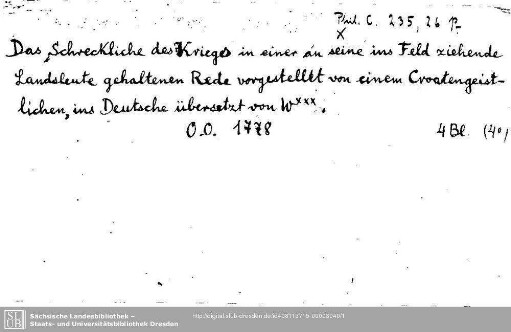 Phil. C. 235, 26 p
X
Das Schreckliche des Krieges in einer an seine ins Feld ziehende
Landsleute gehaltenen Rede vorgestellt von einem Croatengeist-
lichen, ins Deutsche übersetzt von W xxx.
O.O. 1778 4 Bl. (4°)
SLUB Sächsische Landesbibliothek –
Staats- und Universitätsbibliothek Dresden